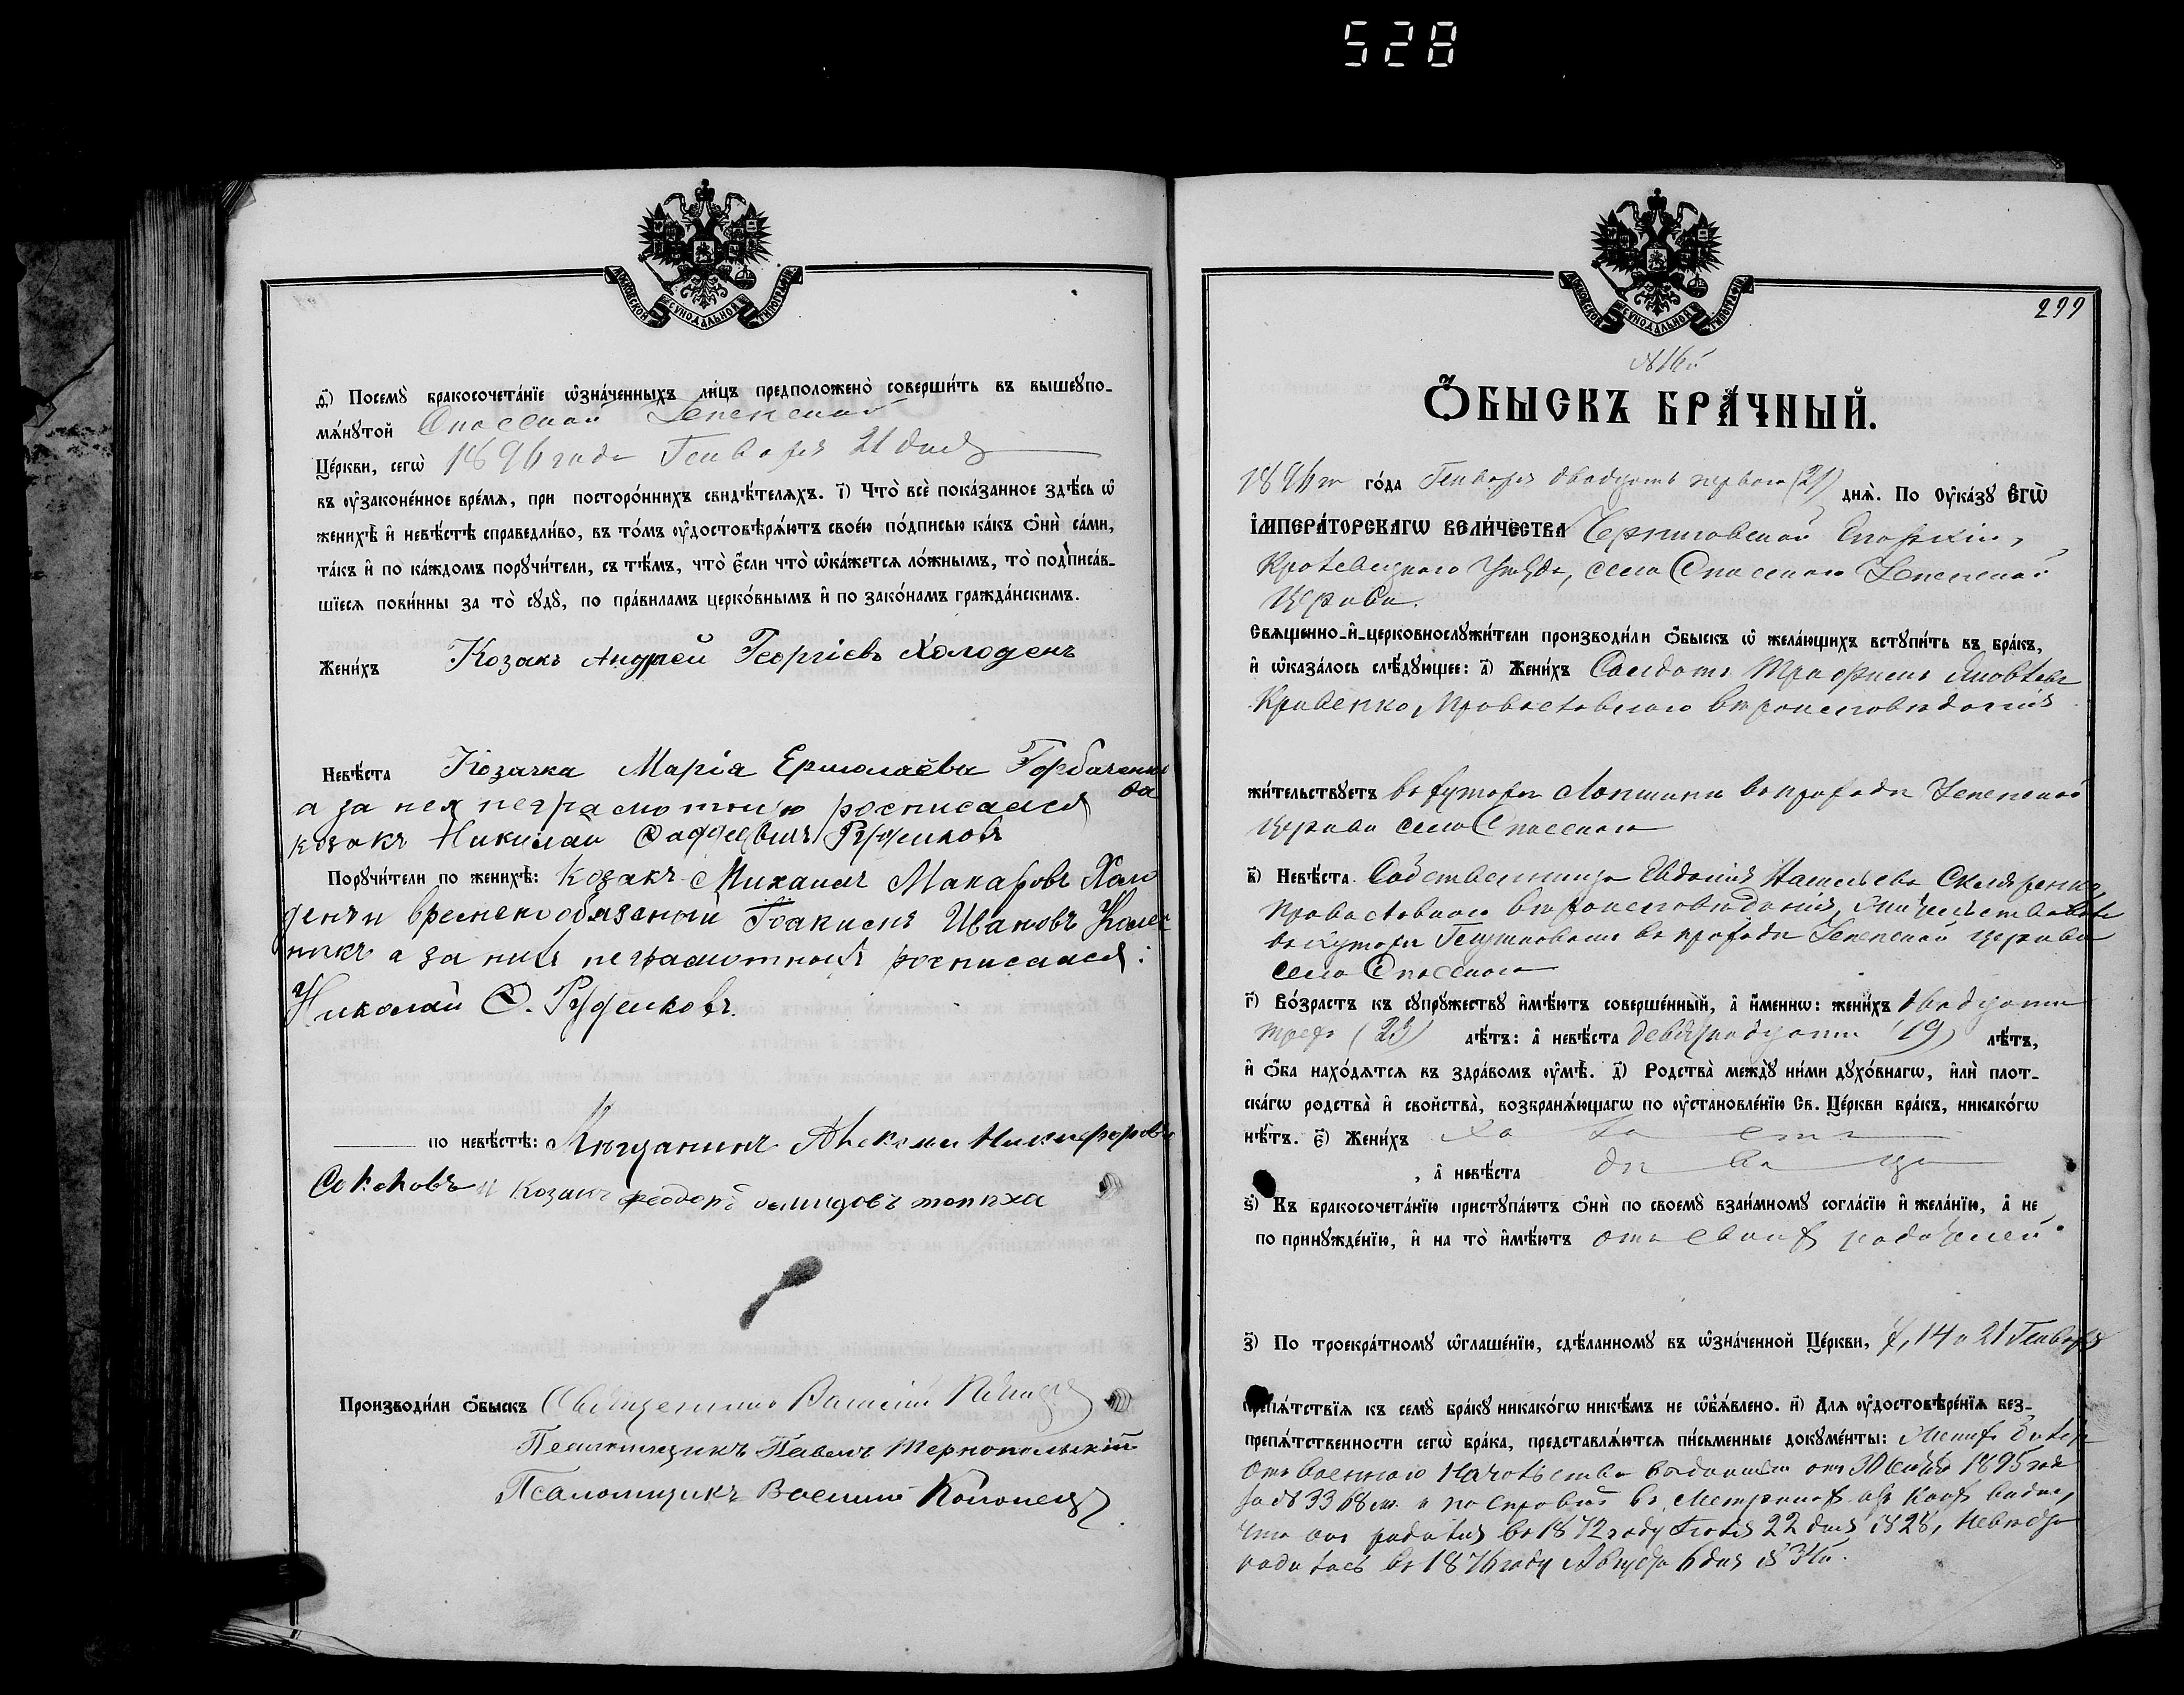 528
МОСКОВСКОЙ СѴНОДАЛЬНОЙ ТИПОГРАФІИ
д҃) Посемꙋ̀ бракосочета́нїе ѡ҆зна́ченныхъ ли́цъ предположено̀ соверши́ть въ вышеꙋпо-
мѧ́нꙋтой Спасской Успенской
Це́ркви, сегѡ̀ 1896 года Генваря 21 дня
въ ᲂу҆законе́нное вре́мѧ, при посторо́ннихъ свидѣ́телѧхъ. і҃) Что̀ всѐ пока́занное здѣ́сь ѡ҆
женихѣ̀ и҆ невѣ́стѣ справедли́во, въ то́мъ ᲂу҆достовѣрѧ́ютъ свое́ю по́дписью ка́къ ѻ҆нѝ са́ми,
та́къ и҆ по ка́ждомъ порꙋчи́тели, съ тѣ́мъ, что̀ є҆́сли что̀ ѡ҆ка́жетсѧ ло́жнымъ, то̀ подписа́в-
шїесѧ пови́нны за то̀ сꙋдꙋ̀, по пра́виламъ церко́внымъ и҆ по зако́намъ гражда́нскимъ.
Жени́хъ Козакъ Андрей Георгіевъ Холоденъ
Невѣ́ста Козачка Марія Ермолаева Горбаченко
ва
а за нея неграмотную росписался
козакъ Николай Руденковъ
Порꙋчи́тели по женихѣ̀: Козакъ Михаилъ Макаровъ Холо
денъ и временнообязанный Іоакимъ Ивановъ
никъ а за нихъ неграмотныхъ росписался:
Николай Ѳ. Руденковъ.
по невѣ́стѣ: Мѣщанинъ Алексѣй Никифоровъ
Соколовъ и Козакъ Феодоръ
Производи́ли ѻ҆́быскъ Священникъ Василій
Псаломщикъ Павелъ Тернопольскій
Псаломщикъ Василій Кононецъ
МОСКОВСКОЙ СѴНОДАЛЬНОЙ ТИПОГРАФІИ
299
№ 16й
Ѻ҆́БЫСКЪ БРА́ЧНЫЙ.
1896го го́да Генваря двадцать перваго (21) днѧ̀. По ᲂу҆ка́зꙋ Є҆ГѠ̀
І҆МПЕРА́ТОРСКАГѠ ВЕЛИ́ЧЕСТВА Черниговской Епархіи,
Кролевецкаго Уѣзда, села Спасскаго Успенской
Церкви.
Свѧще́нно-и҆-церковнослꙋжи́тели производи́ли ѻ҆́быскъ ѡ҆ жела́ющихъ встꙋпи́ть въ бра́къ,
и҆ ѡ҆каза́лось слѣ́дꙋющее: а҃) Жени́хъ Солдатъ Трофимъ Яковлевъ
Кривенко, Православнаго вѣроисповѣданія
жи́тельствꙋетъ въ хуторѣ Лапшини въ приходѣ Успенской
церкви села Спасскаго
в҃) Невѣ́ста Собственница Евдокія Скляренко,
Православнаго вѣроисповѣданія, жительствовала
въ хуторѣ въ приходѣ Успенской церкви
села Спасскаго
г҃) Во́зрастъ къ сꙋпрꙋ́жествꙋ и҆мѣ́ютъ соверше́нный, а҆ и҆́меннѡ: жени́хъ двадцати
трехъ (23) лѣ́тъ: а҆ невѣ́ста девятнадцати (19) лѣ́тъ,
и҆ ѻ҆́ба нахо́дѧтсѧ въ здра́вомъ ᲂу҆мѣ̀. д҃) Родства̀ междꙋ̀ ни́ми дꙋхо́внагѡ, и҆лѝ плот-
ска́гѡ родства̀ и҆ свойства̀, возбранѧ́ющагѡ по ᲂу҆становле́нїю Св. Це́ркви бра́къ, никако́гѡ
нѣ́тъ. є҃) Жени́хъ холостъ
, а҆ невѣ́ста дѣвица
ѕ҃) Къ бракосочета́нїю пристꙋпа́ютъ ѻ҆нѝ по своемꙋ̀ взаи́мномꙋ согла́сїю и҆ жела́нїю, а҆ не
по принꙋжде́нїю, и҆ на то̀ и҆мѣ́ютъ отъ своихъ родителей
з҃) По троекра́тномꙋ ѡ҆глаше́нїю, сдѣ́ланномꙋ въ ѡ҆зна́ченной Це́ркви, 7, 14 и 21 Генваря
препѧ́тствїѧ къ семꙋ̀ бра́кꙋ никако́гѡ никѣ́мъ не ѡ҆б̾ѧ́влено. и҃) Длѧ ᲂу҆достовѣре́нїѧ без-
препѧ́тственности сегѡ̀ бра́ка, представлѧ́ютсѧ пи́сьменные докꙋме́нты: Женихъ билетъ
отъ Военнаго Начальства выданный отъ 30 1895 года
за № 3368 и по справкѣ въ Метрическихъ книгахъ видно,
что онъ родился въ 1872 году Іюля 22 дня № 28, невѣста
родилась въ 1876 году Августа 6 дня № 34й.